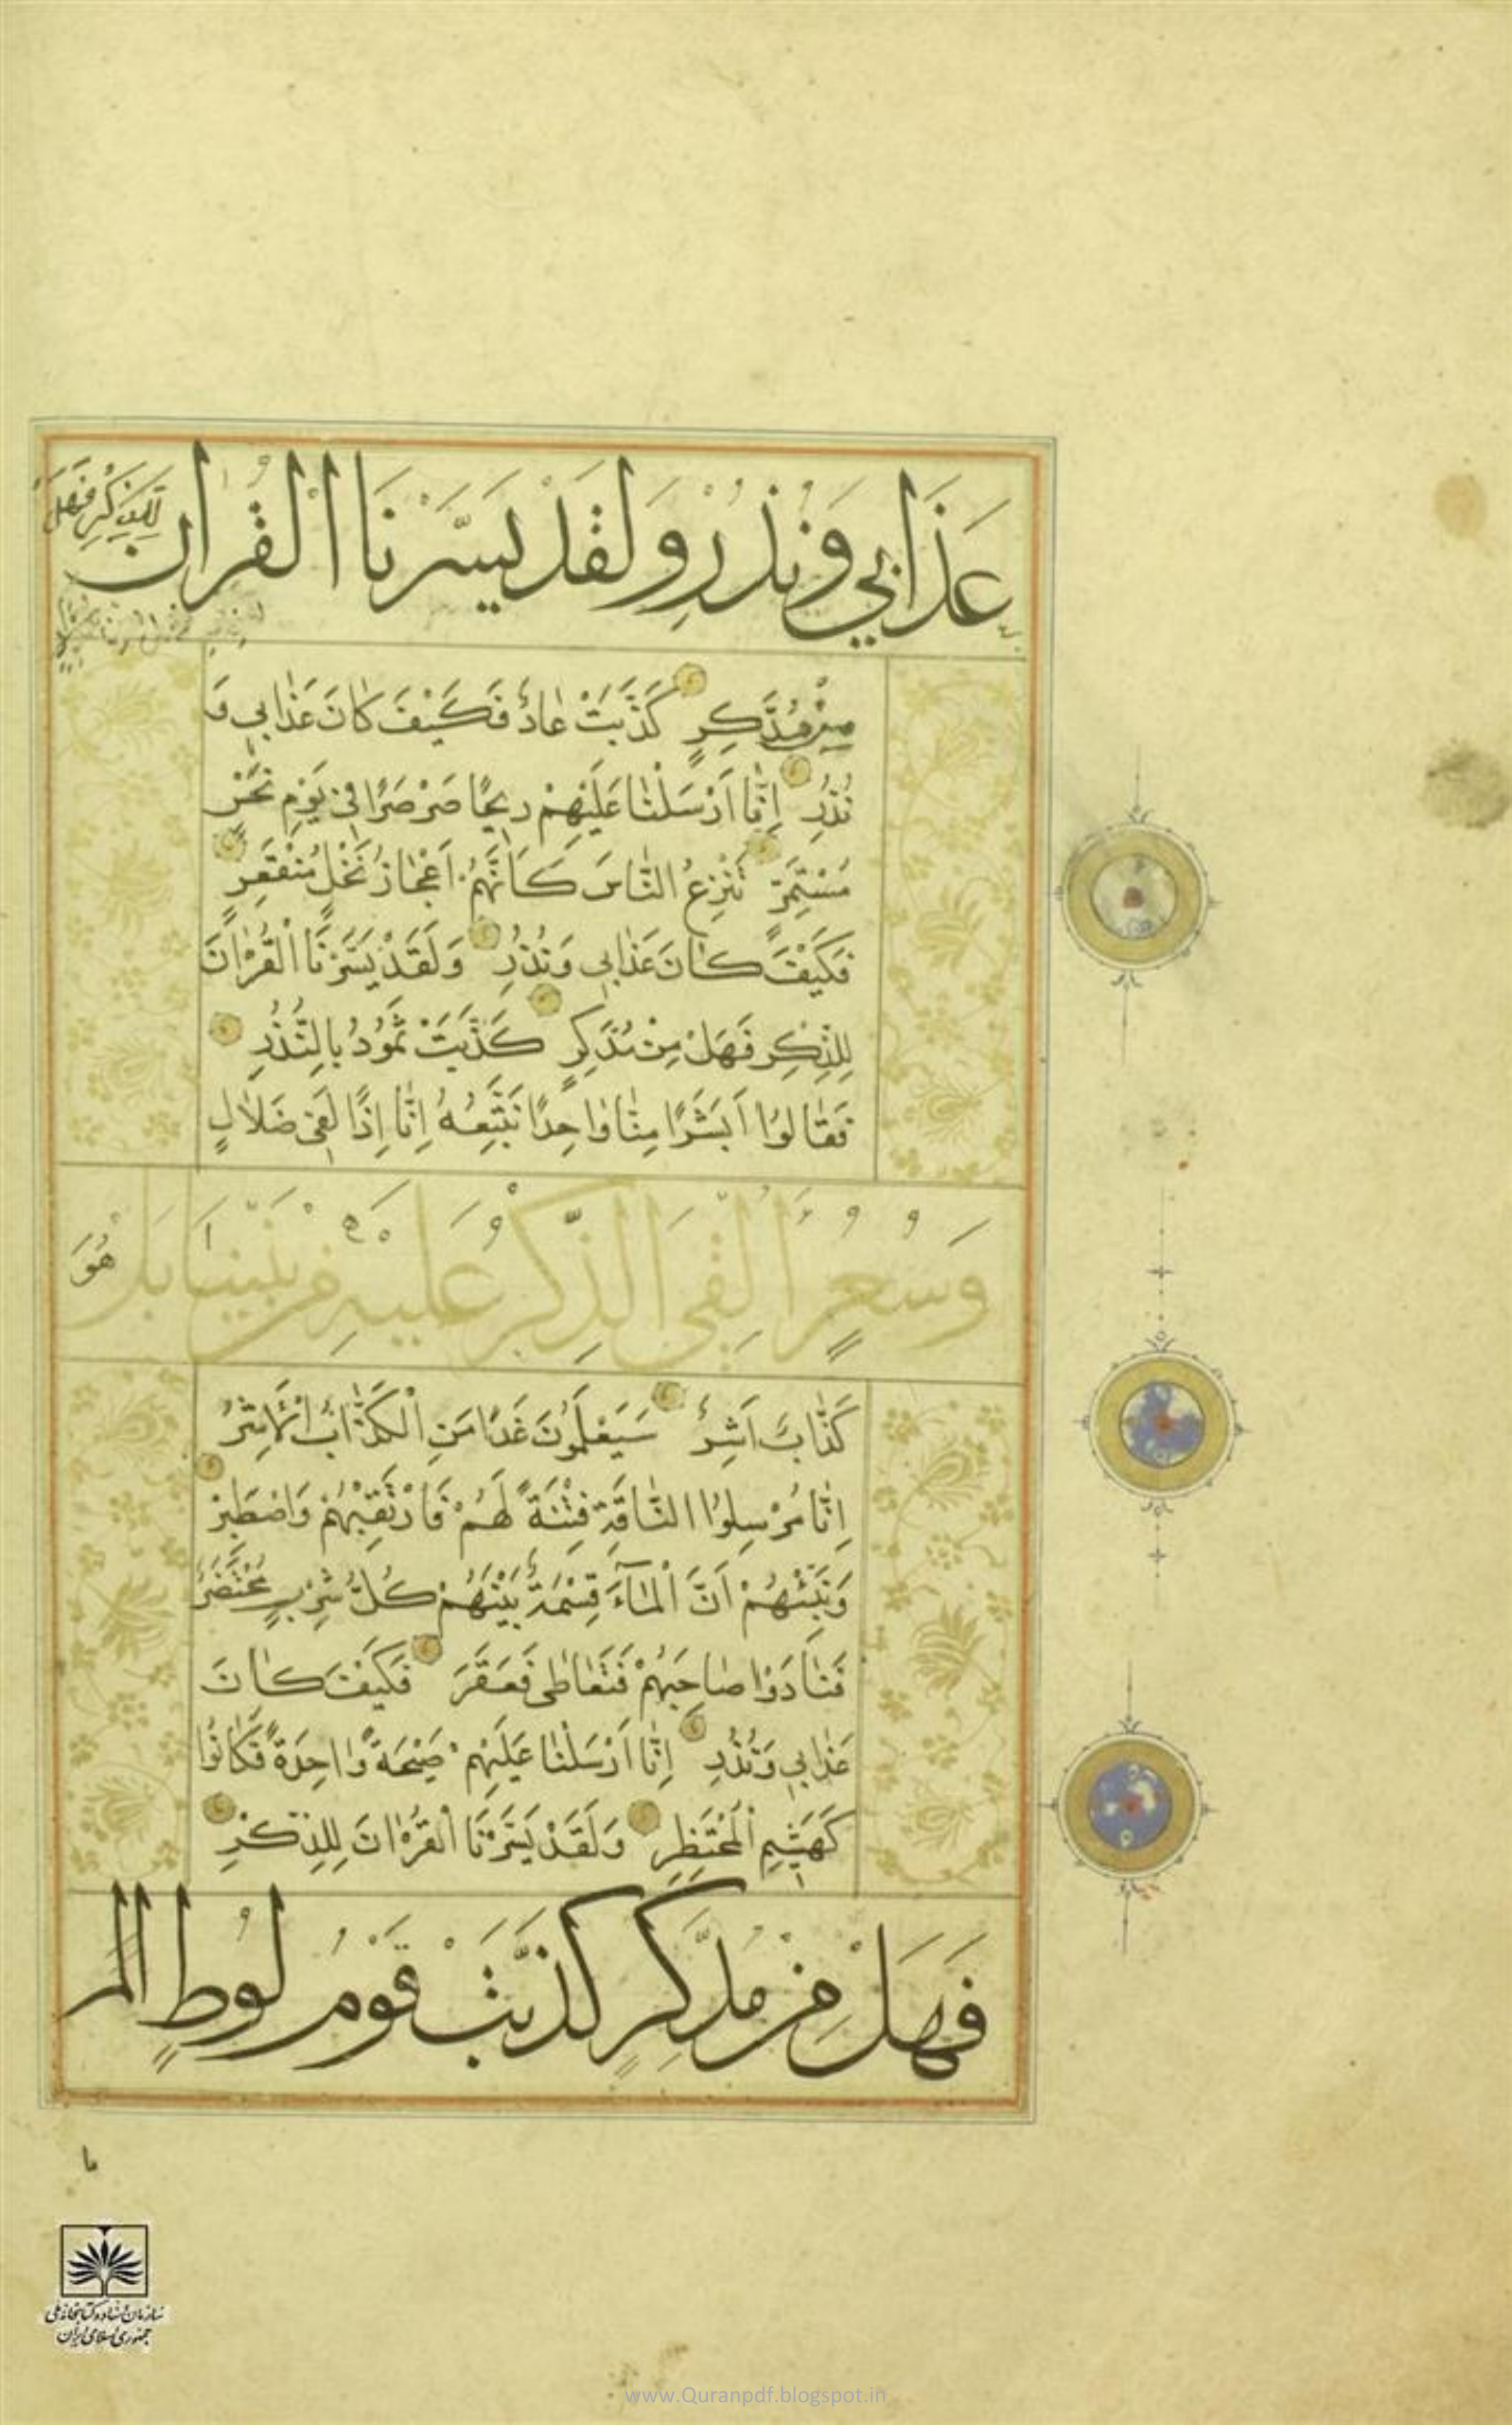 عَذَابِي وَنُذُرِ وَلَقَدْ يَسَّرْنَا الْقُرْاٰنَ لِلذِّكْرِ فَهَلْ
مِنْ مُدَّكِرٍ كَذَّبَتْ عٰادٌ فَكَيْفَ كٰانَ عَذٰابِي وَ
نُذُرِ اِنّٰا اَرْسَلْنٰا عَلَيْهِمْ رِيحًا صَرْصَرًا فِي يَوْمِ نَحْسٍ
مُسْتَمِرٍّ تَنْزِعُ النّٰاسَ كَاَنَّهُمْ اَعْجٰازُ نَخْلٍ مُنْقَعِرٍ
فَكَيْفَ كٰانَ عَذٰابِي وَنُذُرِ وَلَقَدْ يَسَّرْنَا الْقُرْاٰنَ
لِلذِّكْرِ فَهَلْ مِنْ مُدَّكِرٍ كَذَّبَتْ ثَمُودُ بِالنُّذُرِ
فَقٰالُوا اَبَشَرًا مِنّٰا وٰاحِدًا نَتَّبِعُهُ اِنّٰا اِذًا لَفِي ضَلٰالٍ
وَسُعُرٍ اَاُلْقِيَ الذِّكْرُ عَلَيْهِ مِنْ بَيْنِنَا بَلْ هُوَ
كَذّٰابٌ اَشِرٌ سَيَعْلَمُونَ غَدًا مَنِ الْكَذّٰابُ الْاَشِرُ
اِنّٰا مُرْسِلُوا النّٰاقَةِ فِتْنَةً لَهُمْ فَارْتَقِبْهُمْ وَاصْطَبِرْ
وَنَبِّئْهُمْ اَنَّ الْمٰاۤءَ قِسْمَةٌ بَيْنَهُمْ كُلُّ شِرْبٍ مُحْتَضَرٌ
فَنٰادَوْا صٰاحِبَهُمْ فَتَعٰاطٰى فَعَقَرَ فَكَيْفَ كٰانَ
عَذٰابِي وَنُذُرِ اِنّٰا اَرْسَلْنٰا عَلَيْهِمْ صَيْحَةً وٰاحِدَةً فَكٰانُوا
كَهَشِيمِ الْمُحْتَظِرِ وَلَقَدْ يَسَّرْنَا الْقُرْاٰنَ لِلذِّكْرِ
فَهَلْ مِنْ مُدَّكِرٍ كَذَّبَتْ قَوْمُ لُوطٍ
سازمان اسناد و کتابخانه ملی
جمهوری اسلامی ایران
www.Quranpdf.blogspot.in